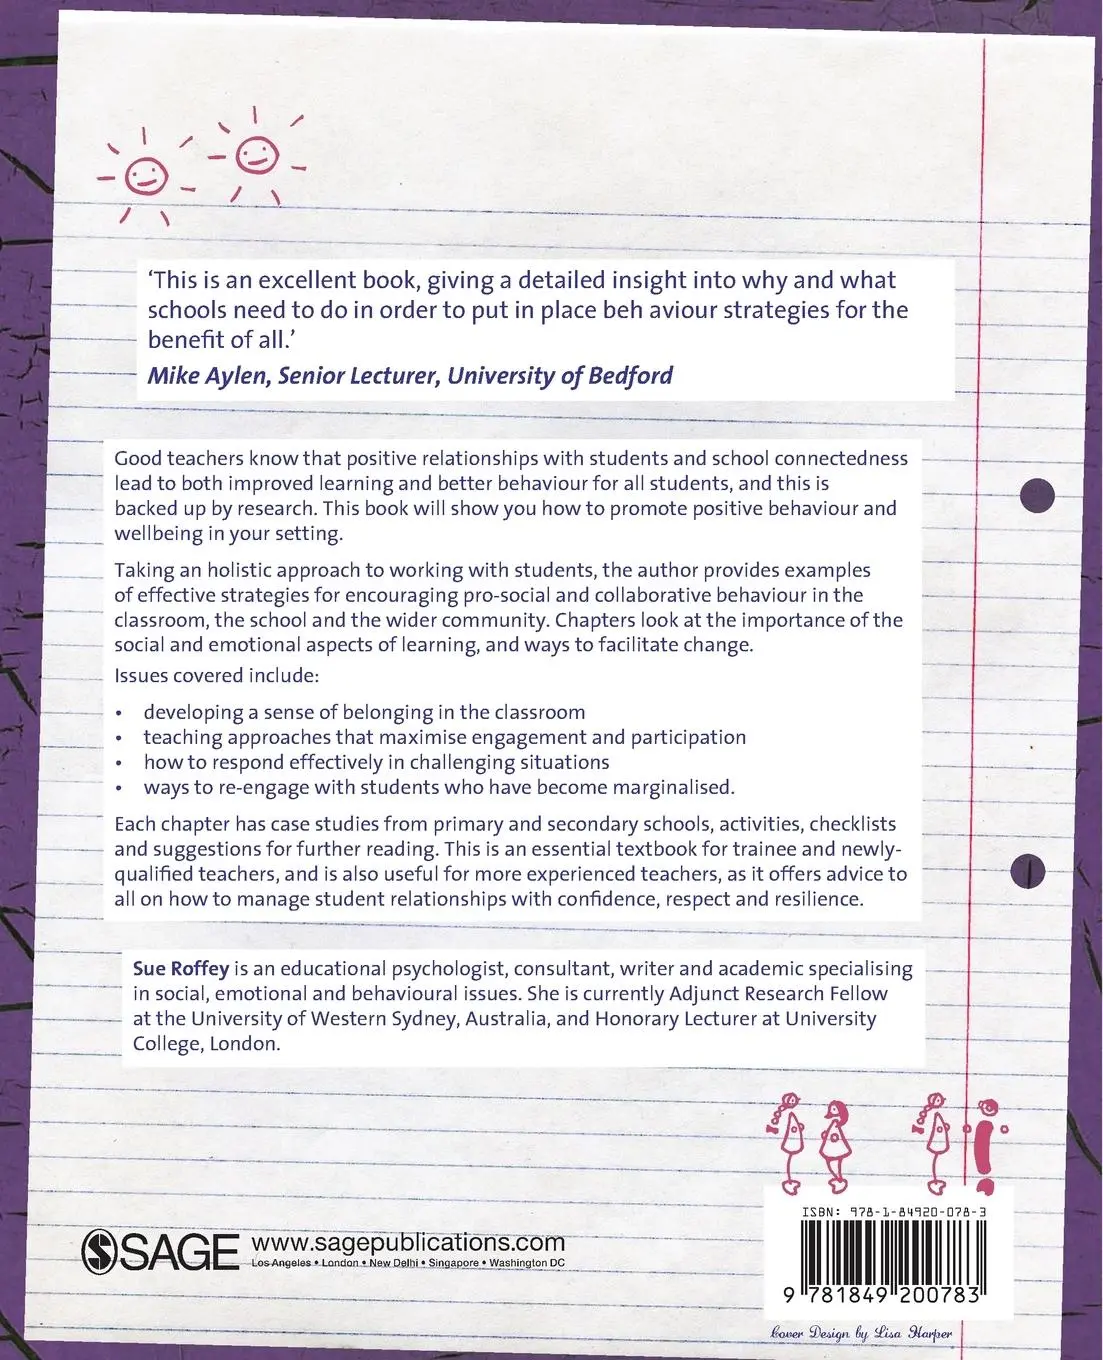 ‘This is an excellent book, giving a detailed insight into why and what
schools need to do in order to put in place beh aviour strategies for the
benefit of all.’
Mike Aylen, Senior Lecturer, University of Bedford
Good teachers know that positive relationships with students and school connectedness
lead to both improved learning and better behaviour for all students, and this is
backed up by research. This book will show you how to promote positive behaviour and
wellbeing in your setting.
Taking an holistic approach to working with students, the author provides examples
of effective strategies for encouraging pro-social and collaborative behaviour in the
classroom, the school and the wider community. Chapters look at the importance of the
social and emotional aspects of learning, and ways to facilitate change.
Issues covered include:
• developing a sense of belonging in the classroom
• teaching approaches that maximise engagement and participation
• how to respond effectively in challenging situations
• ways to re-engage with students who have become marginalised.
Each chapter has case studies from primary and secondary schools, activities, checklists
and suggestions for further reading. This is an essential textbook for trainee and newly-
qualified teachers, and is also useful for more experienced teachers, as it offers advice to
all on how to manage student relationships with confidence, respect and resilience.
Sue Roffey is an educational psychologist, consultant, writer and academic specialising
in social, emotional and behavioural issues. She is currently Adjunct Research Fellow
at the University of Western Sydney, Australia, and Honorary Lecturer at University
College, London.
ISBN: 978-1-84920-078-3
SSAGE www.sagepublications.com
Los Angeles • London • New Delhi • Singapore • Washington DC
9 781849 200783
Cover Design by Lisa Harper